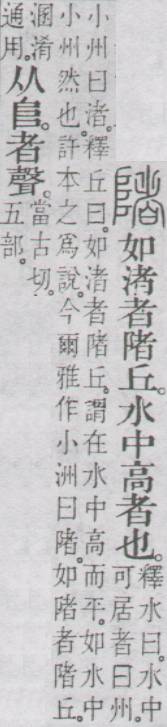 陼如渚者陼丘。水中高者也。釋水曰。水中
可居者曰州。
小州曰渚。釋丘曰。如渚者陼丘。謂在水中高而平。如水中
小州然也。許本之爲說。今爾雅作小洲曰陼。如陼者陼丘。
溷淆
通用。
从𨸏。者聲。當古切。
五部。